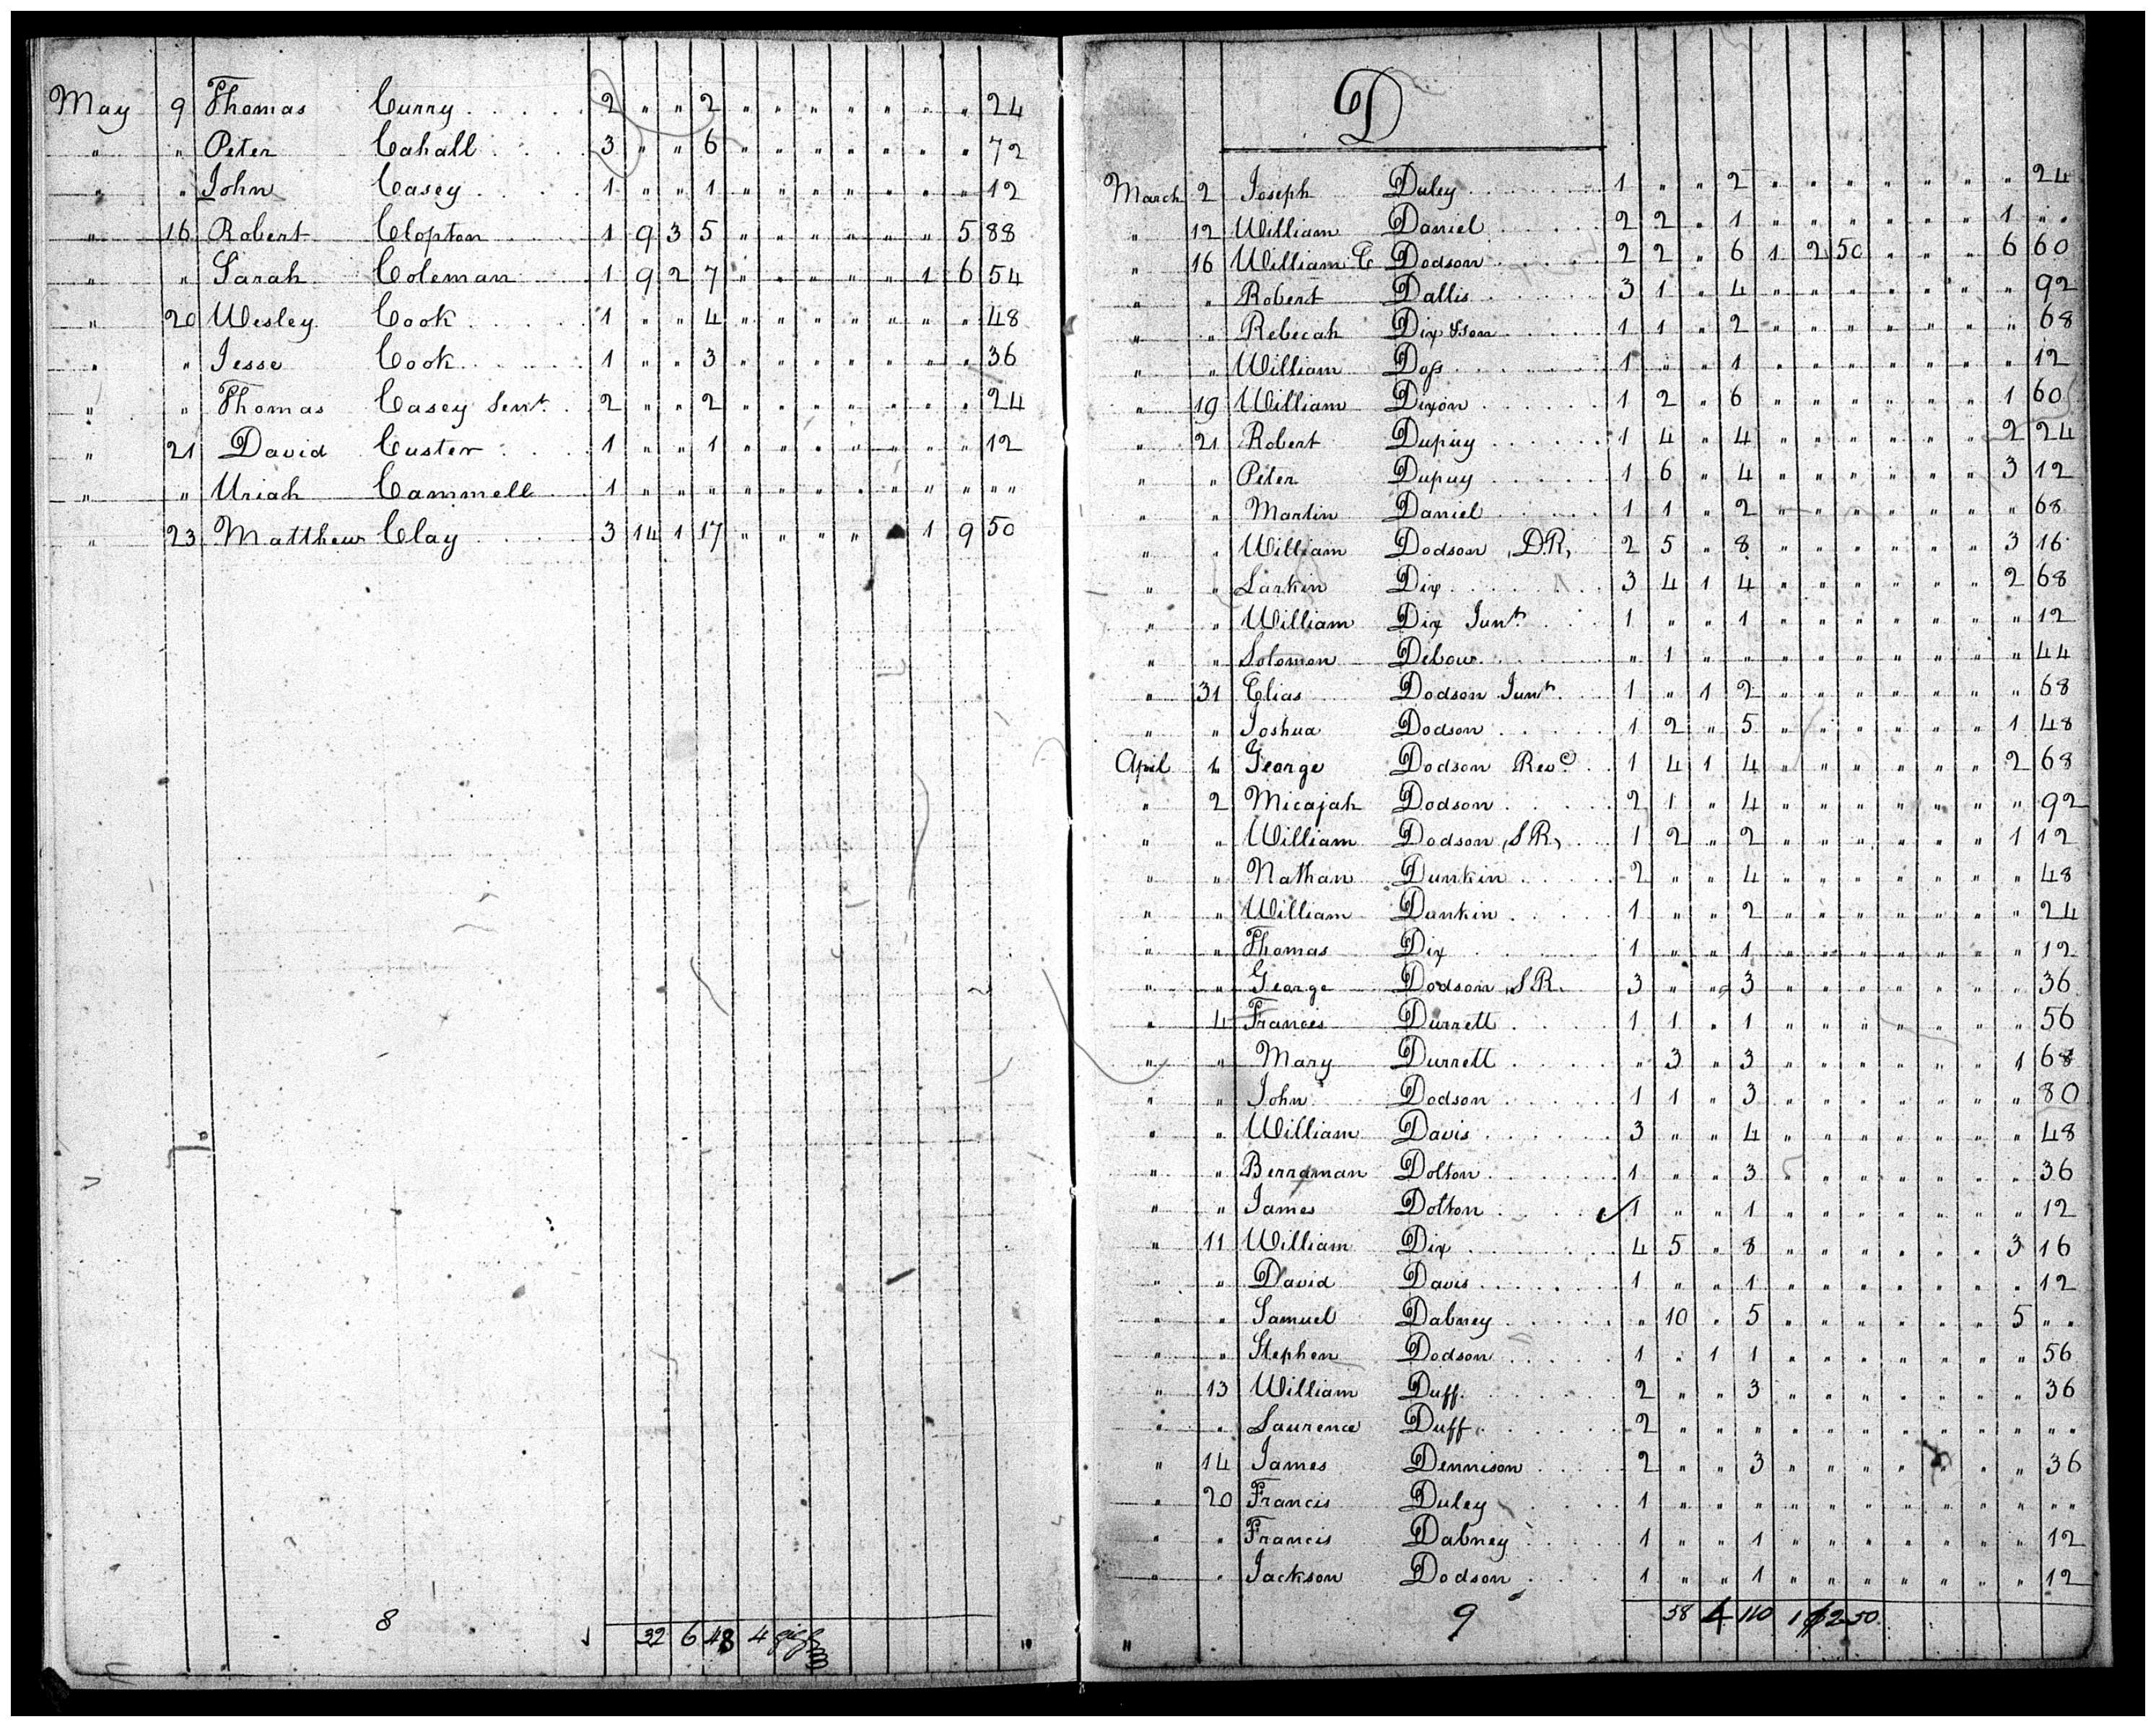 May 9 Thomas Curry 2 " " 2 " " " " " " " 24
" " Peter Cahall 3 " " 6 " " " " " " " 72
" " John Casey 1 " " 1 " " " " " " " 12
" 16 Robert Clopton 1 9 3 5 " " " " " " 5 88
" " Sarah Coleman 1 9 2 7 " " " " " 1 6 54
" 20 Wesley Cook 1 " " 4 " " " " " " " 48
" " Jesse Cook 1 " " 3 " " " " " " " 36
" " Thomas Casey Senr. 2 " " 2 " " " " " " " 24
" 21 David Custer 1 " " 1 " " " " " " " 12
" " Uriah Cammell 1 " " " " " " " " " " " "
" 23 Matthew Clay 3 14 1 17 " " " " " 1 9 50
8
32 6 48 4
D
March 2 Joseph Duley 1 " " 2 " " " " " " " 24
" 12 William Daniel 2 2 " 1 " " " " " " 1 " "
" 16 William C Dodson 2 2 " 6 1 2 50 " " " 6 60
" " Robert Dallis 3 1 " 4 " " " " " " " 92
" " Rebecah Dix & Son 1 1 " 2 " " " " " " " 68
" " William Doss 1 " " 1 " " " " " " " 12
" 19 William Dixon 1 2 " 6 " " " " " " 1 60
" 21 Robert Dupuy 1 4 " 4 " " " " " " 2 24
" " Peter Dupuy 1 6 " 4 " " " " " " 3 12
" " Martin Daniel 1 1 " 2 " " " " " " " 68
" " William Dodson, D.R, 2 5 " 8 " " " " " " 3 16
" " Larkin Dix 3 4 1 4 " " " " " " 2 68
" " William Dix Junr. 1 " " 1 " " " " " " " 12
" " Solomon Debow " 1 " " " " " " " " " 44
" 31 Elias Dodson Junr. 1 " 1 2 " " " " " " " 68
" " Joshua Dodson 1 2 " 5 " " " " " " 1 48
April 1 George Dodson Revd. 1 4 1 4 " " " " " " 2 68
" 2 Micajah Dodson 2 1 " 4 " " " " " " " 92
" " William Dodson, SR, 1 2 " 2 " " " " " " 1 12
" " Nathan Dunkin 2 " " 4 " " " " " " " 48
" " William Dunkin 1 " " 2 " " " " " " " 24
" " Thomas Dix 1 " " 1 " " " " " " " 12
" " George Dodson, SR. 3 " " 3 " " " " " " " 36
" 4 Frances Durrett 1 1 " 1 " " " " " " " 56
" " Mary Durrett " 3 " 3 " " " " " " 1 68
" " John Dodson 1 1 " 3 " " " " " " " 80
" " William Davis 3 " " 4 " " " " " " " 48
" " Berraman Dolton 1 " " 3 " " " " " " " 36
" " James Dolton 1 " " 1 " " " " " " " 12
" 11 William Dix 4 5 " 8 " " " " " " 3 16
" " David Davis 1 " " 1 " " " " " " " 12
" " Samuel Dabney " 10 " 5 " " " " " " 5 " "
" " Stephen Dodson 1 " 1 1 " " " " " " " 56
" 13 William Duff 2 " " 3 " " " " " " " 36
" " Laurence Duff 2 " " " " " " " " " " " "
" 14 James Dennison 2 " " 3 " " " " " " " 36
" 20 Francis Duley 1 " " " " " " " " " " " "
" " Francis Dabney 1 " " 1 " " " " " " " 12
" " Jackson Dodson 1 " " 1 " " " " " " " 12
9
58 4 110 1 $2 50